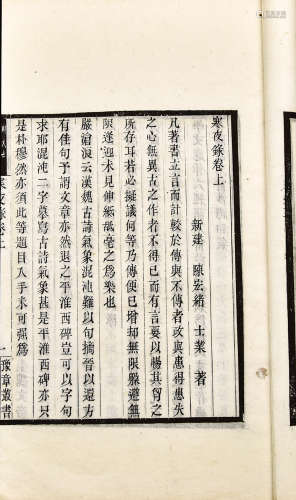 寒夜錄卷上
新建　陳宏緒　士業　著
凡著書立言而計較於傳與不傳者政與患得患失
之心無異古之作者不得已而有言要以暢其胷之
所存耳若必擬議何等乃傳便已增却無限躱避無
限逢迎未見伸紙舐毫之爲樂也
嚴滄浪云漢魏古詩氣象混沌難以句摘晉以還方
有佳句予謂文章亦然退之平淮西碑豈可以字句
求耶混沌二字摹寫古詩氣象甚是平淮西碑亦只
是朴穆然亦須此等題目入手來可強爲
寒夜錄卷上
一
豫章叢書